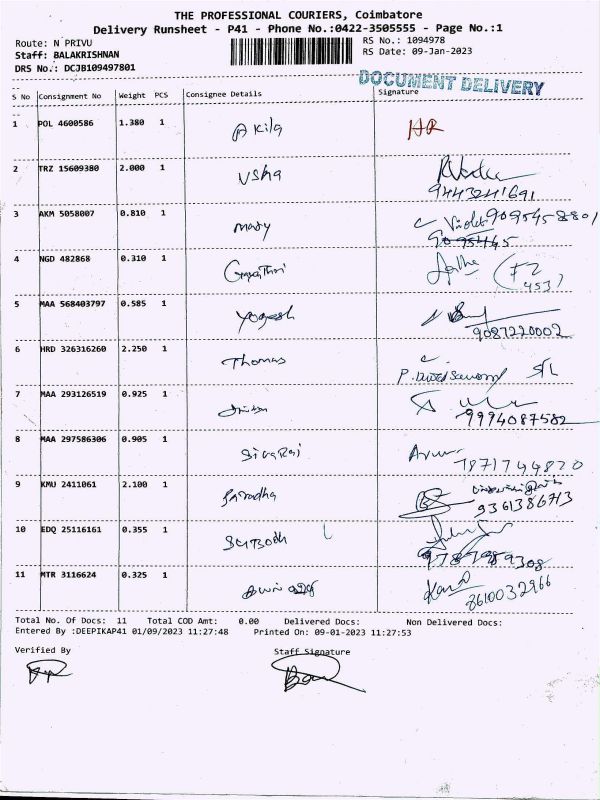 THE PROFESSIONAL COURIERS, Coimbatore
Delivery Runsheet - P41 - Phone No.:0422-3505555 - Page No.:1
Route: N PRIVU
RS No.: 1094978
Staff: BALAKRISHNAN
RS Date: 09-Jan-2023
DRS No.: DCJB109497801
DOCUMENT DELIVERY
S No Consignment No Weight PCS Consignee Details Signature
1 POL 4600586 1.380 1 Akila HR
2 TRZ 15609380 2.000 1 Usha
9443241691
3 AKM 5058007 0.810 1 Mary Violet 9095458801
9095445
4 NGD 482868 0.310 1 Gayathri
5 MAA 568403797 0.585 1 Yogesh
9087220002
6 HRD 326316260 2.250 1 Thomas
7 MAA 293126519 0.925 1
9994087582
8 MAA 297586306 0.905 1 Sivaraj Arun
7871744820
9 KMU 2411061 2.100 1 Saradha
9361386713
10 EDQ 25116161 0.355 1
9787989308
11 MTR 3116624 0.325 1
8610032966
Total No. Of Docs: 11 Total COD Amt: 0.00 Delivered Docs: Non Delivered Docs:
Entered By :DEEPIKAP41 01/09/2023 11:27:48 Printed On: 09-01-2023 11:27:53
Verified By Staff Signature